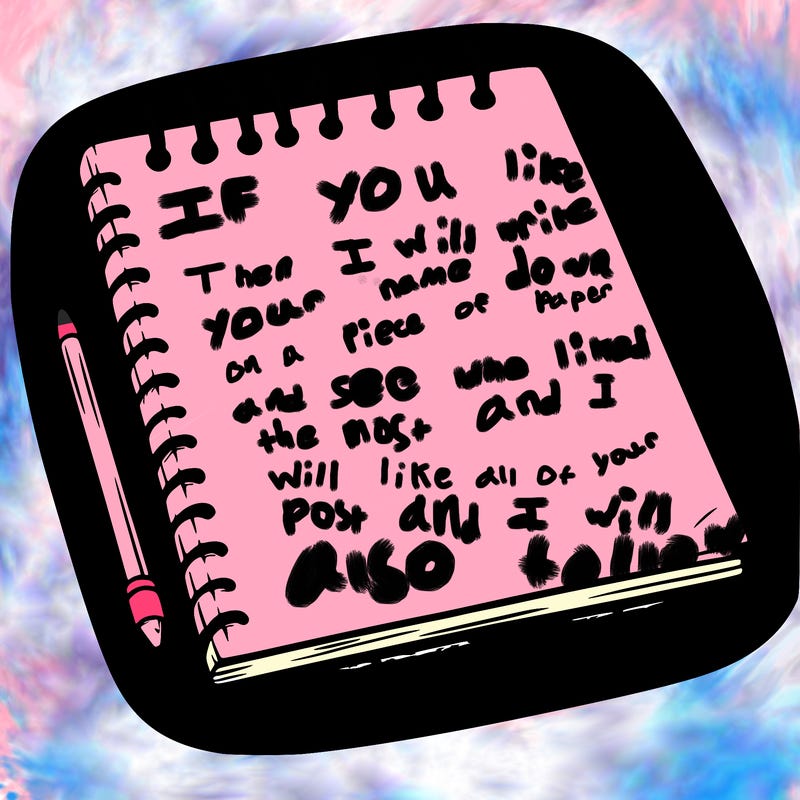 IF YOU like
Then I will write
your name down
on a Piece of Paper
and see who liked
the most and I
will like all of your
post and I will
Also follow